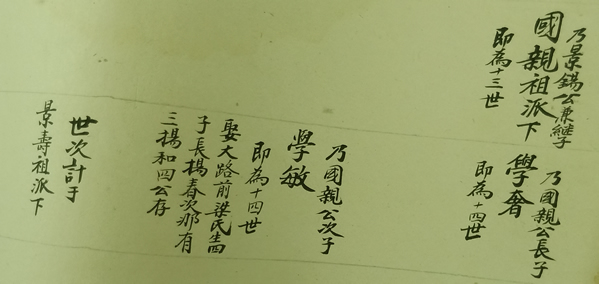 乃景錫公兼繼子
國親祖派下
即為十三世
乃國親公長子
學奮
即為十四世
乃國親公次子
學敏
即為十四世
娶大路前梁氏生四
子長揚春次那有
三揚和四公存
世次計于
景壽祖派下